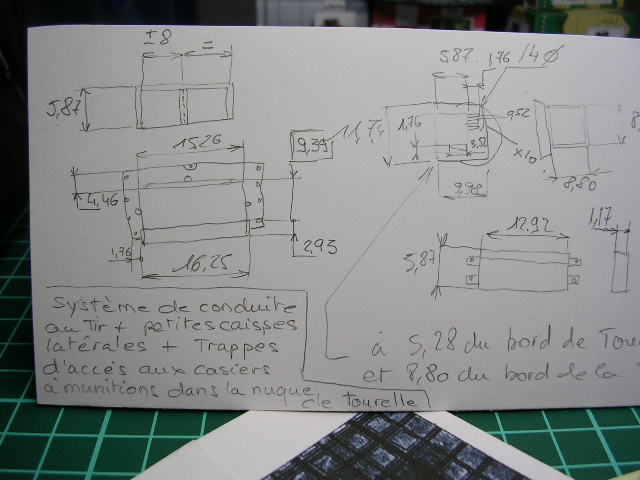 ± 8 =
5,87
15,26
4,46
1,76
16,25
9,39
2,93
5,87 1,76 /4 Ø
11,74
1,76
9,52
3,52
x10
9,98
8,80
12,92
1,17
5,87
Système de conduite
au Tir + petites caisses
latérales + Trappes
d'accès aux casiers
à munitions dans la nuque
de tourelle
à 5,28 du bord de Tou
et 8,80 du bord de la